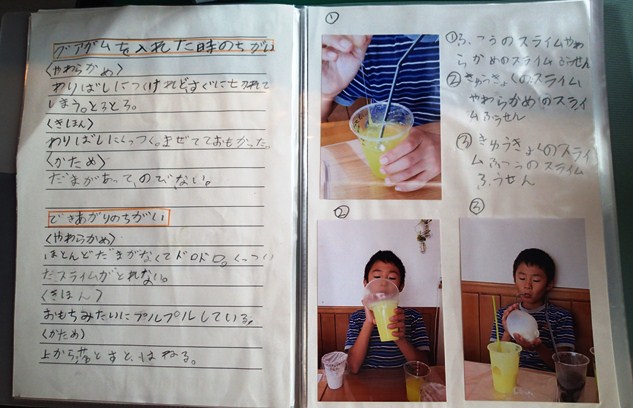 グアガムを入れた時のちがい
〈やわらかめ〉
わりばしにつくけれど、すぐにせつれて
しまう。とろとろ。
〈きほん〉
わりばしにくっつく。まぜてておもかった。
〈かため〉
だまがあって、のびない。
できあがりのちがい
〈やわらかめ〉
ほとんどだまがなくてドロドロ。くっつい
だスライムがとれない。
〈きほん〉
おもちみたいにプルプルしている。
〈かため〉
上から落とすと、はねる。
①
①ふつうのスライムやわ
らかめのスライムふうせん
②きゅうきょくのスライム
やわらかめのスライ
ムふうせん
③きゅうきょくのスライ
ムふつうのスライム
ふうせん
②
③